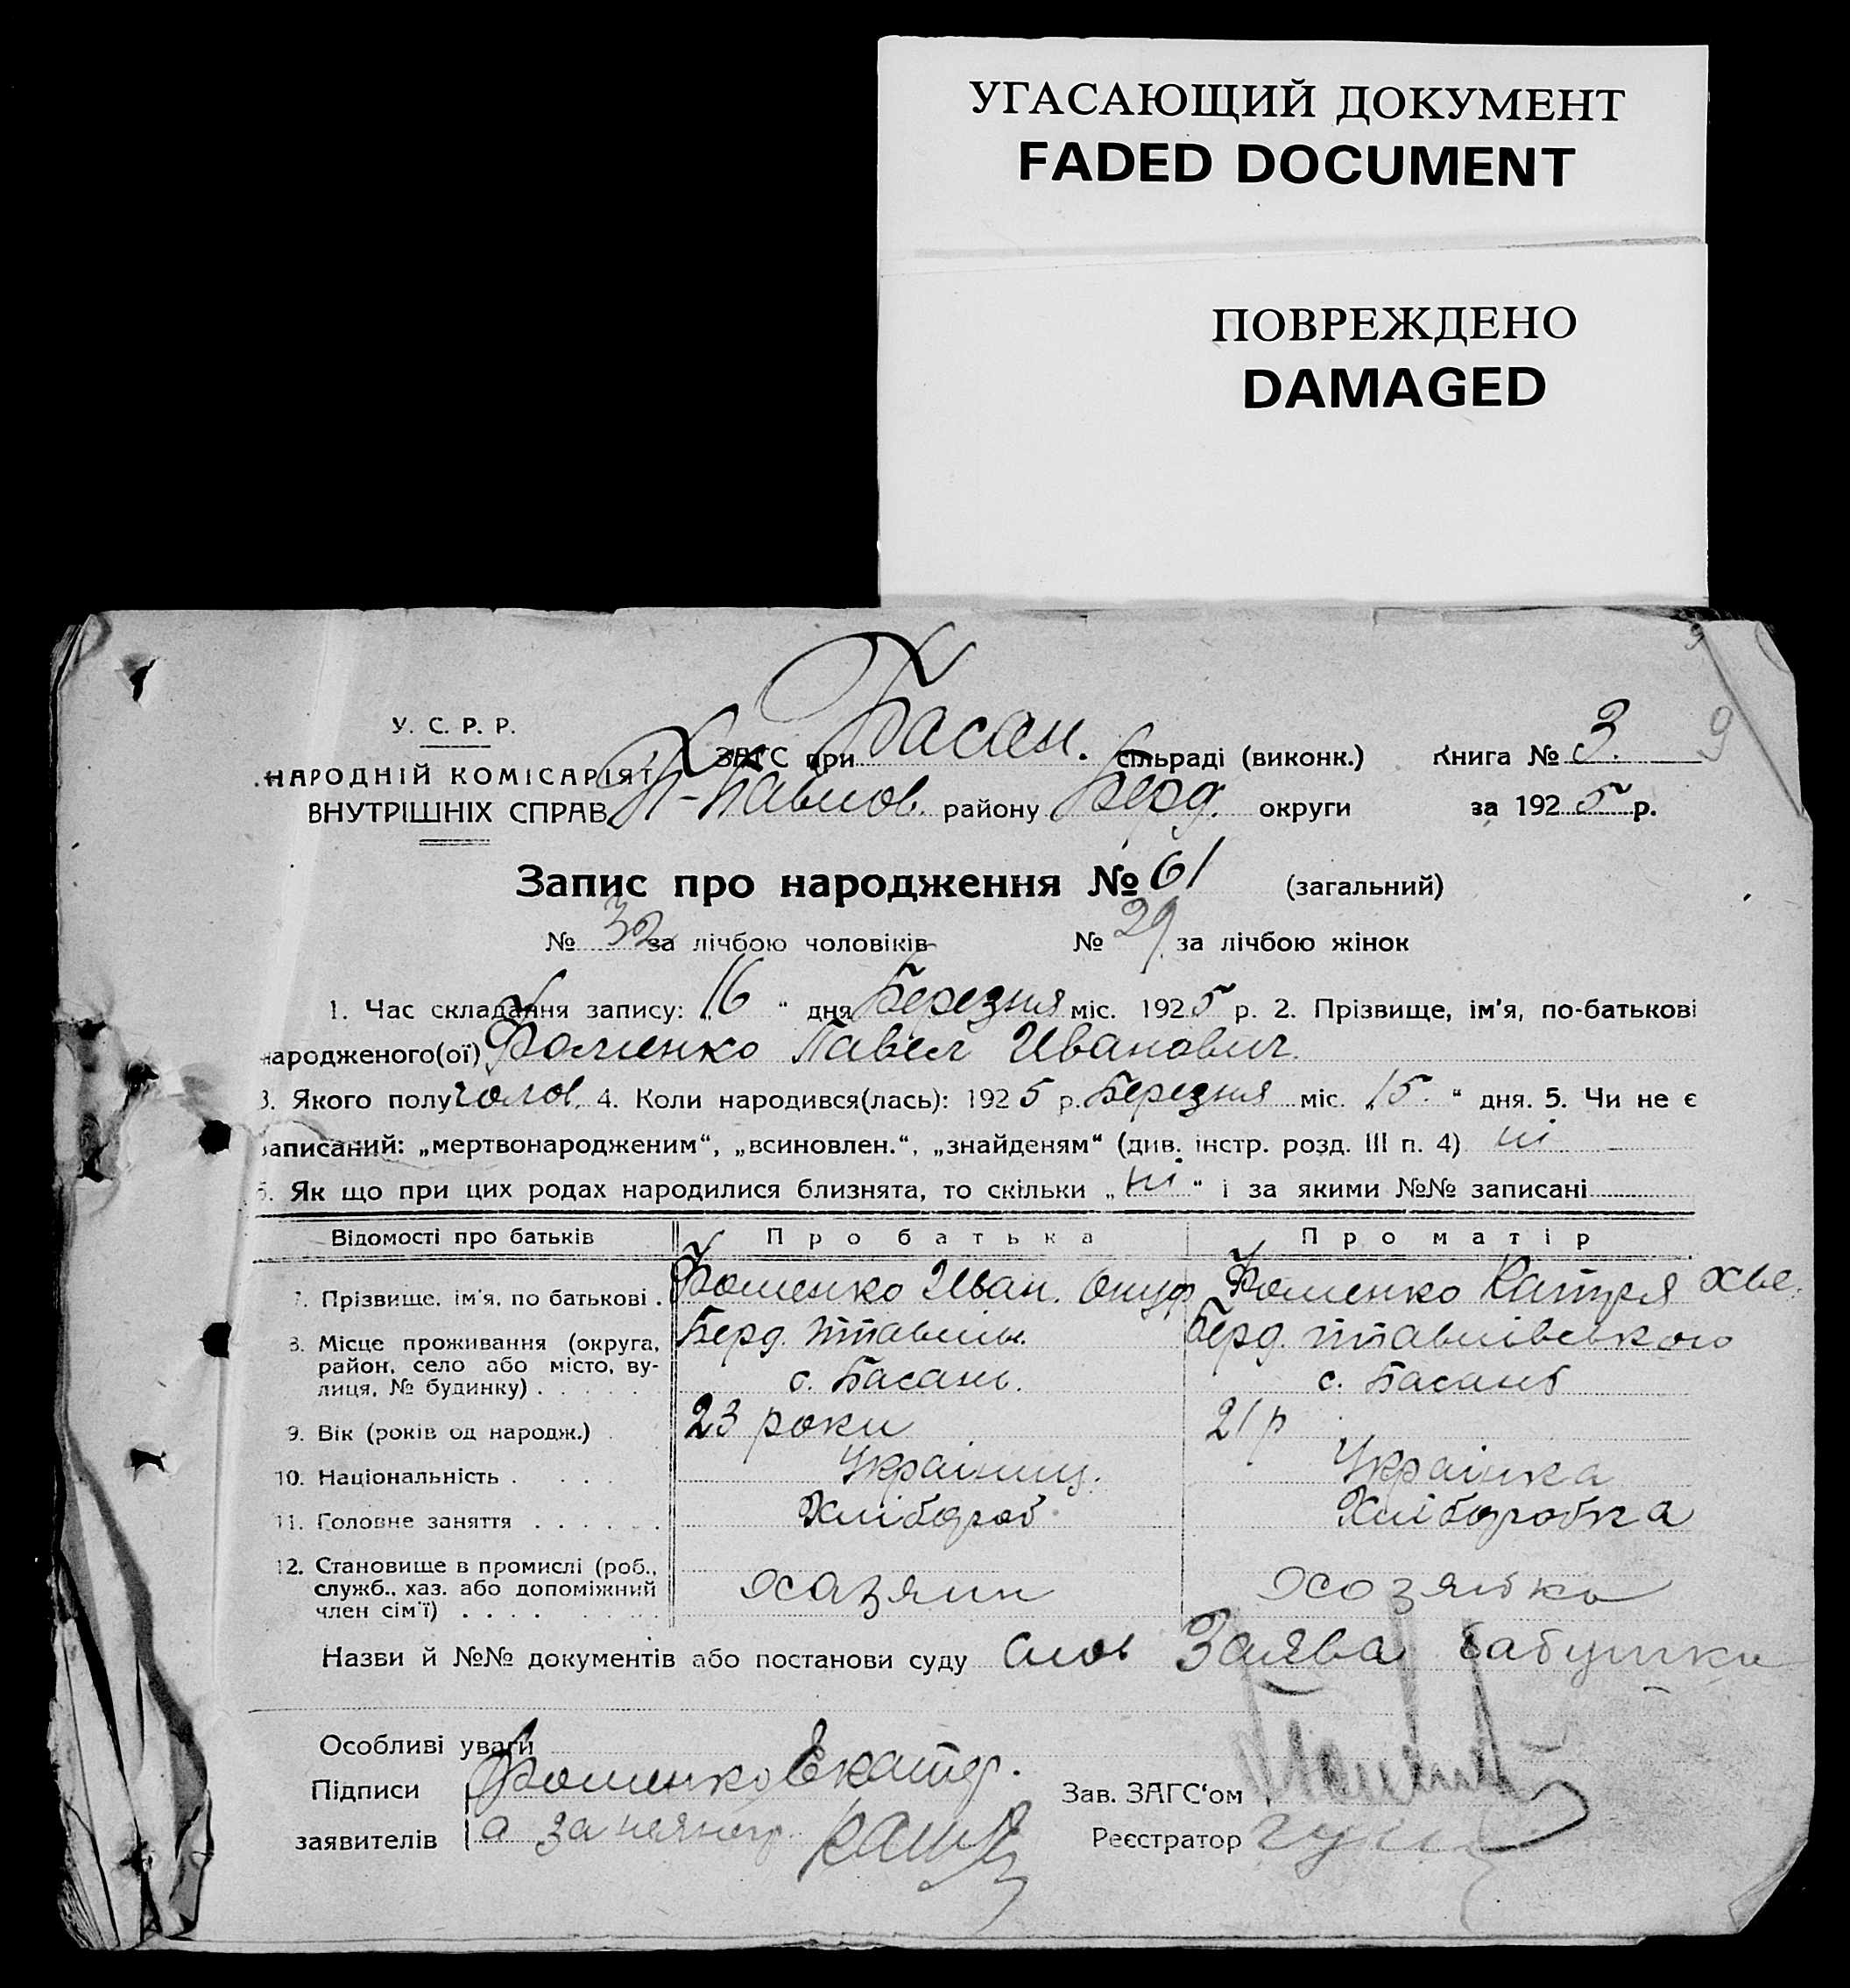 УГАСАЮЩИЙ ДОКУМЕНТ
FADED DOCUMENT
ПОВРЕЖДЕНО
DAMAGED
9
У. С. Р. Р.
НАРОДНІЙ КОМІСАРІЯТ
ВНУТРІШНІХ СПРАВ
ЗАГС при Басан. сільраді (виконк.) Книга № 3.
Павлов. району Берд. округи за 1925 р.
Запис про народження № 61 (загальний)
№ 32 за лічбою чоловіків № 29 за лічбою жінок
1. Час складання запису: „16 “ дня Березня міс. 1925 р. 2. Прізвище, ім'я, по-батькові
народженого(ої) Фоменко Павел Иванович.
3. Якого полу чолов. 4. Коли народився(лась): 1925 р. Березня міс. „15. “ дня. 5. Чи не є
записаний: „мертвонародженим“, „всиновлен.“, „знайденям“ (див. інстр. розд. III п. 4) ні
6. Як що при цих родах народилися близнята, то скільки „ні“ і за якими №№ записані
Відомості про батьків Про батька Про матір
7. Прізвище, ім'я, по батькові . Фоменко Иван. Онуф Фоменко Катря Хве.
8. Місце проживання (округа, район, село або місто, вулиця, № будинку) . . . . . Берд. с. Басань. Берд. с. Басань
9. Вік (років од народж.) . 23 роки 21 р
10. Національність . . . . Українец. Українка
11. Головне заняття . . . . . . Хлібороб. Хліборобка
12. Становище в промислі (роб., служб., хаз. або допоміжний член сім'ї) . . . . хазяин хозяйка
Назви й №№ документів або постанови суду Слов Заява бабушки
Особливі уваги
Підписи Фоменко Екатер. Зав. ЗАГС'ом
заявителів а за Реєстратор